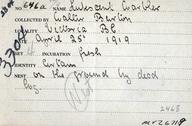 No 646a NAME Lutescent Warbler
COLLECTED BY Walter Burton
LOCALITY Victoria BC
DATE April 25th 1919
SET 4 INCUBATION fresh
IDENTITY Certain
NEST on the ground by dead
log.
2468